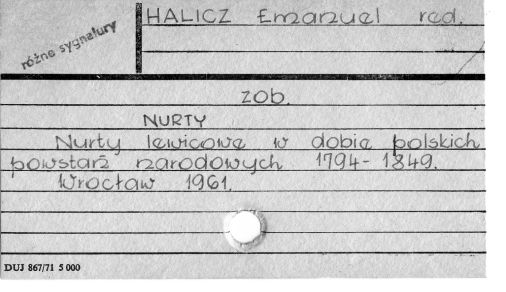 HALICZ Emanuel red.
różne sygnatury
zob.
NURTY
Nurty lewicowe w dobie polskich
powstań narodowych 1794-1849.
Wrocław 1961.
DUJ 867/71 5 000